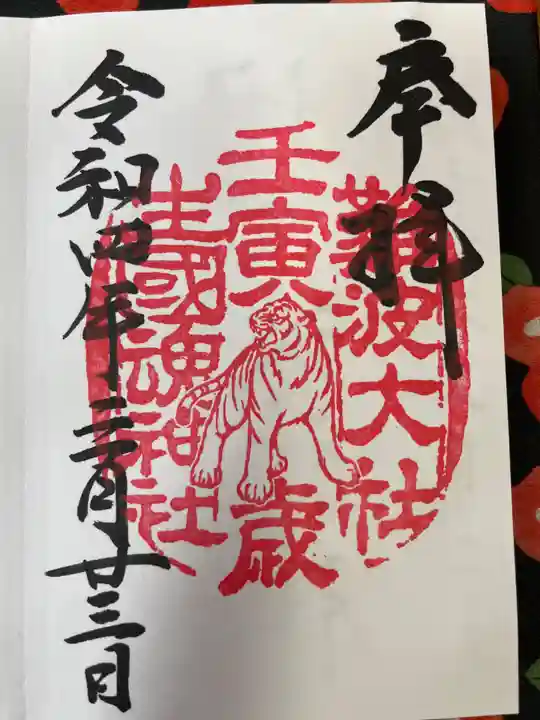 奉拝
難波大社
壬寅歳
生國魂神社
令和四年二月廿三日